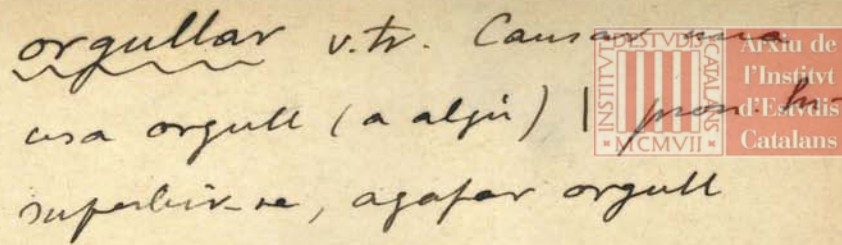 orgullar v.tr. Causar una
cosa orgull (a algú) | pron.
superbir-se, agafar orgull
INSTITVT
D'ESTVDIS
CATALANS
MCMVII
Arxiu de
l'Institvt
d'Estvdis
Catalans